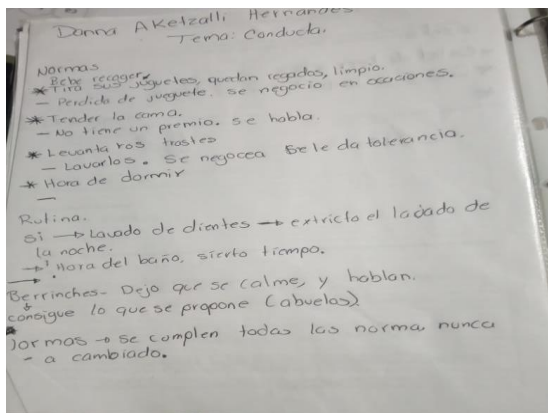 Danna Aketzalli Hernandes
Tema: Conducta.
Normas
Debe recoger,
* Tira sus juguetes, quedan regados, limpio.
- Perdida de juguete. se negocio en ocaciones.
* Tender la cama.
- No tiene un premio. se habla.
* Levanta ros trastes
- Lavarlos. Se negocea se le da tolerancia.
* Hora de dormir
-
Rutina.
si → Lavado de dientes → extricto el lavado de
la noche.
→ Hora del baño, sierto tiempo.
→ .
Berrinches- Dejo que se calme, y hablan.
consigue lo que se propone (abuelas)
Normas → se complen todas las norma nunca
- a cambiado.